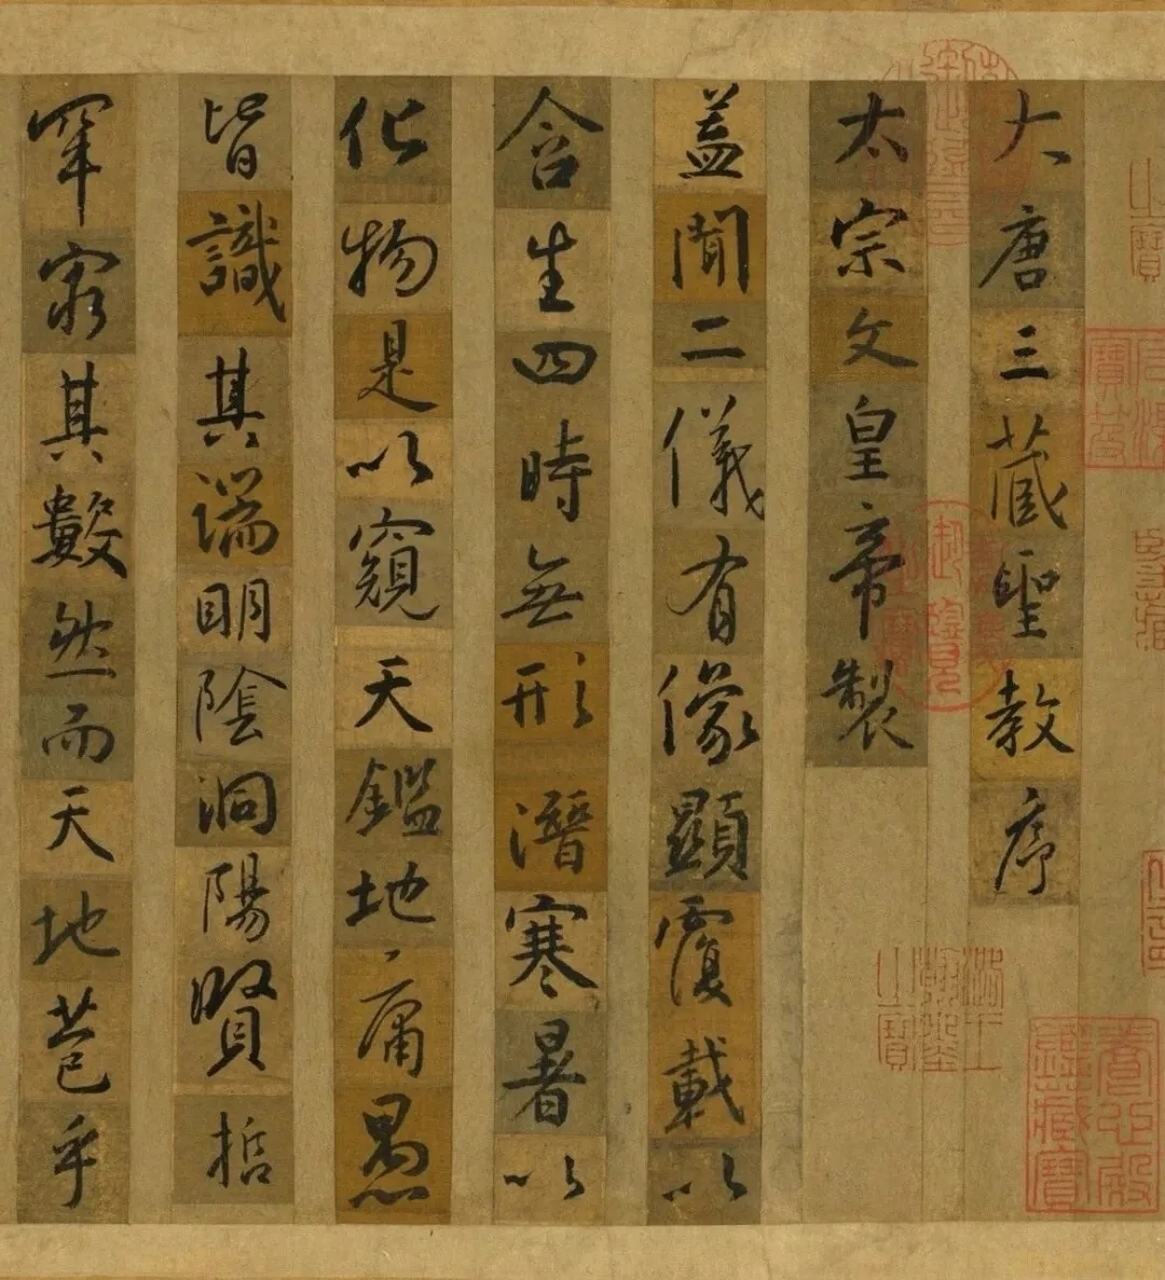 大唐三藏聖教序
太宗文皇帝製
蓋聞二儀有像顯覆載以
含生四時無形潛寒暑以
化物是以窺天鑑地庸愚
皆識其端明陰洞陽賢哲
罕窮其數然而天地苞乎